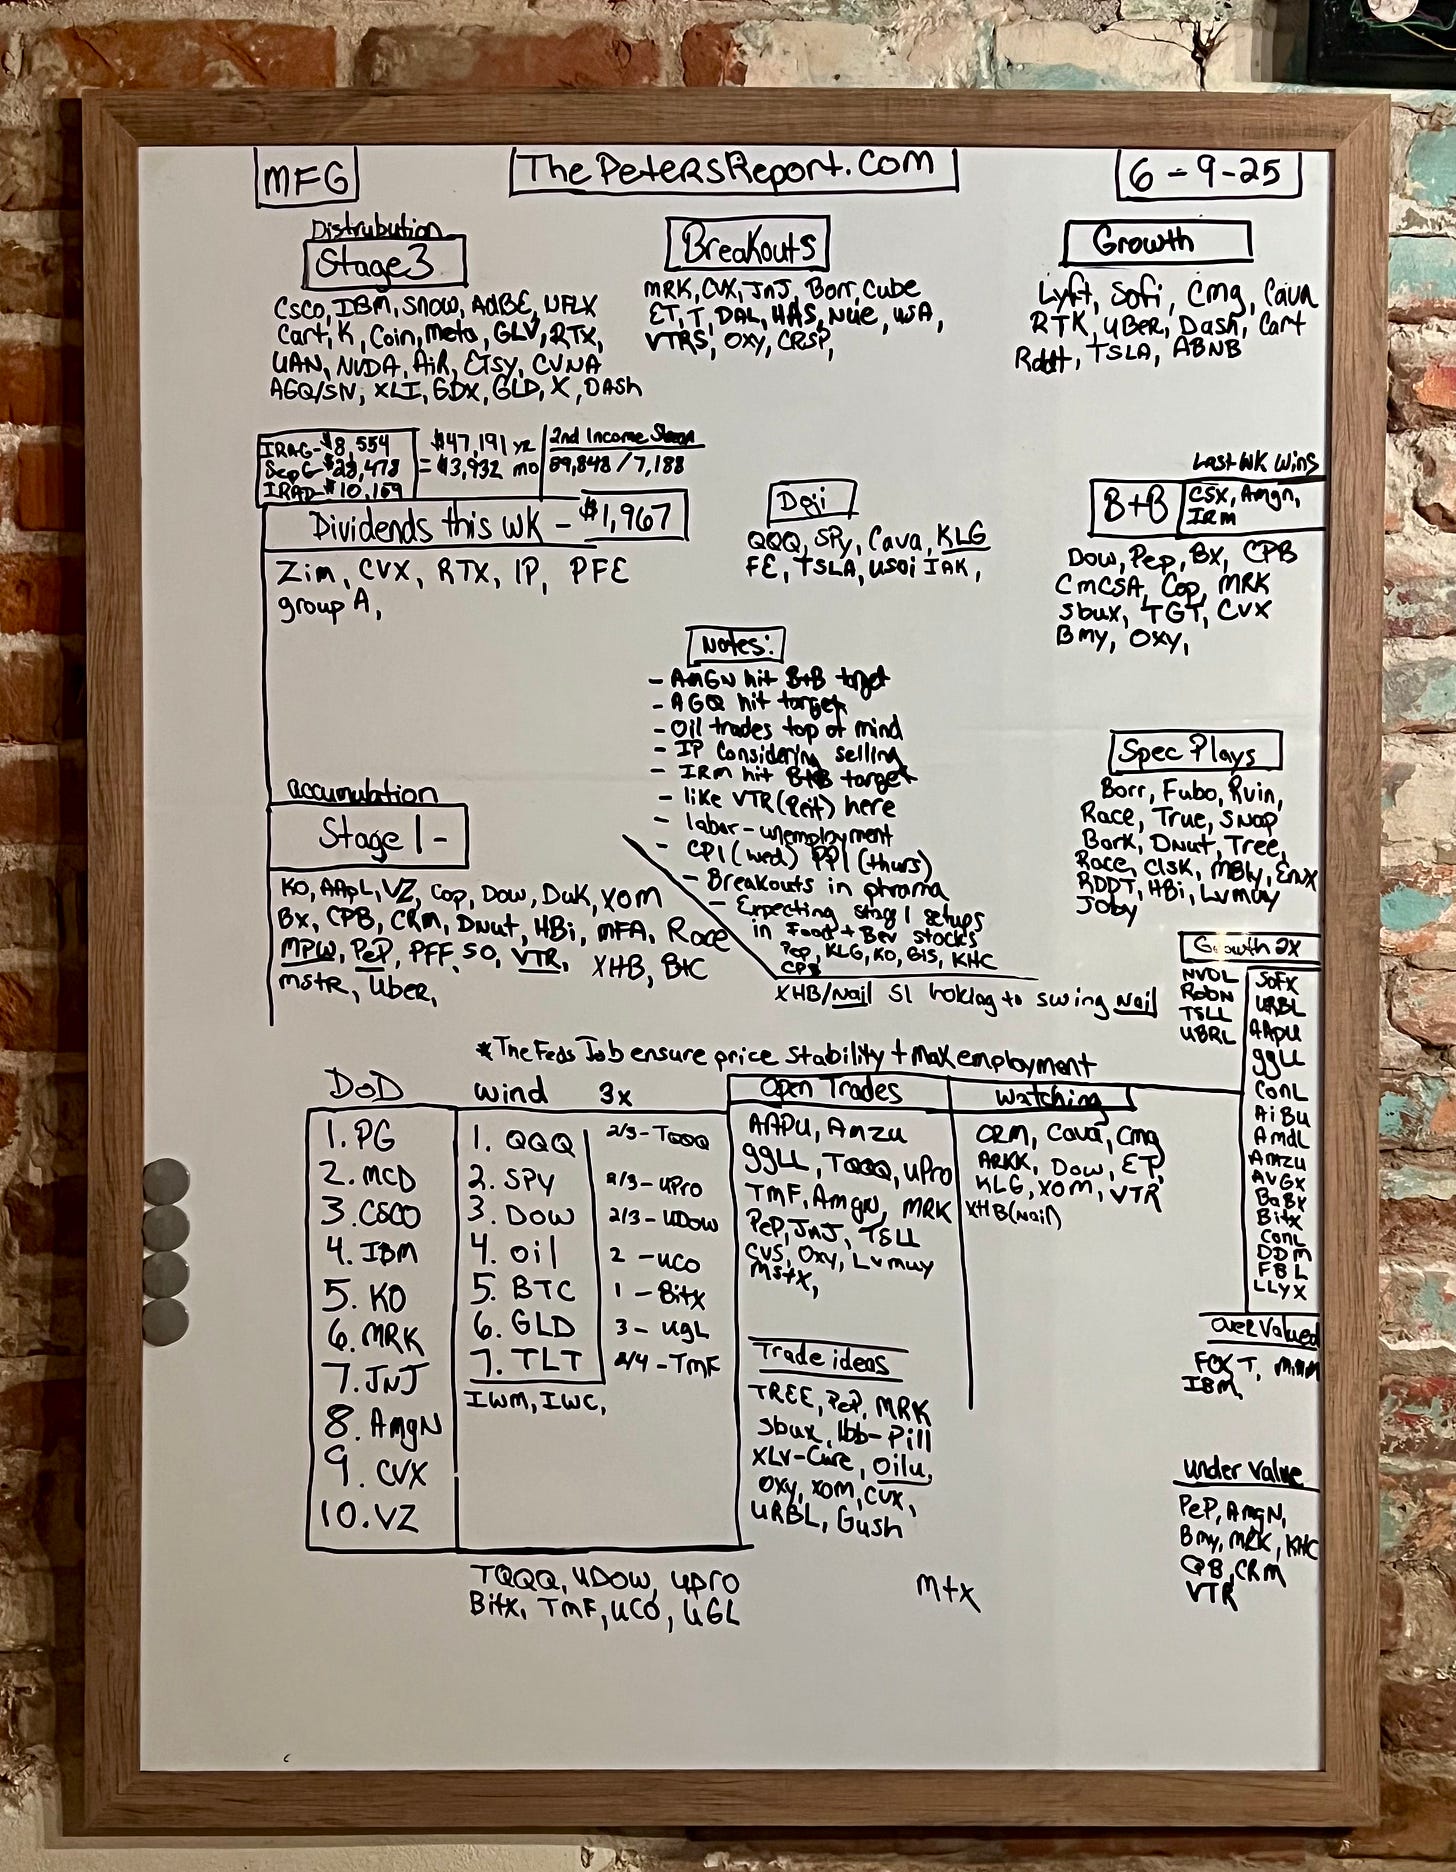 MFG
ThePetersReport.com
6-9-25
Distrubution
Stage 3
Csco, IBM, Snow, AdBE, NFLX
Cart, K, Coin, Meta, GLV, RTX,
UAN, NVDA, AiR, Etsy, CVNA
AGQ/SN, XLI, GDX, GLD, X, DASh
Breakouts
MRK, CVX, JnJ, Borr, Cube
ET, T, DAL, HAS, Nue, USA,
VTRS, OXY, CRSP,
Growth
Lyft, Sofi, Cmg, Cava
RTK, UBer, Dash, Cart
Reddt, TSLA, ABNB
IRAG-$8,554
Sep C-$28,478
IRAD-$10,159
$47,191 yr
= $3,932 mo
2nd Income
89,848 / 7,188
Dividends this wk - $1,967
Zim, CVX, RTX, IP, PFE
group A,
Doji
QQQ, SPy, Cava, KLG
FE, TSLA, usoi IAK,
Last wk wins
B+B
CSX, Amgn,
IRM
Dow, Pep, Bx, CPB
CmCSA, Cop, MRK
sbux, TGT, CVX
Bmy, OXY,
Notes:
- AMGN hit B+B target
- AGQ hit target
- Oil trades top of mind
- IP Considering selling
- IRM hit B+B target
- like VTR (Reit) here
- labor-unemployment
- CPI (wed) PPI (thurs)
- Breakouts in phrama
- Expecting stage 1 setups
in Food + Bev stocks
Pep, KLG, KO, GIS, KHC
CPB
XHB/Nail S1 to swing Nail
Spec Plays
Borr, Fubo, Rvin,
Race, True, Snap
Bark, Dnut, Tree,
Race, Clsk, MBly, EnX
RDDT, HBi, Lvmuy
Joby
accumulation
Stage 1 -
KO, AApL, VZ, Cop, Dow, Duk, XOM
Bx, CPB, CRM, Dnut, HBi, MFA, Race
MPW, PeP, PFF, SO, VTR, XHB, BtC
mstr, Uber,
Growth 2x
NVDL
RobN
TSLL
UBRL
SoFX
URBL
AApU
ggLL
ConL
AiBu
AmdL
Amzu
AVGX
BaBx
Bitx
ConL
DDM
FBL
LLYX
*The Feds Job ensure price stability + max employment
DoD
1. PG
2. MCD
3. CSCO
4. IBM
5. KO
6. MRK
7. JNJ
8. AmgN
9. CVX
10. VZ
wind 3x
1. QQQ 2/3-TQQQ
2. SPY 2/3-UPro
3. Dow 2/3-UDow
4. oil 2-uco
5. BTC 1-Bitx
6. GLD 3-ugL
7. TLT 2/4-TmF
IWM, IWC,
TQQQ, UDow, Upro
Bitx, TmF, UCO, UGL
Open Trades
AAPU, Amzu
ggLL, TQQQ, uPro
TMF, AmgN, MRK
PeP, JnJ, TSLL
CVS, Oxy, Lvmuy
Mstx,
watching
CRM, Cava, Cmg
ARKK, Dow, ET,
KLG, XOM, VTR
XHB (Nail)
Trade ideas
TREE, PeP, MRK
Sbux, Ibb-Pill
XLV-Cure, Oilu,
Oxy, xom, cvx,
URBL, Gush
Over Valued
FOX T,
IBM,
under value
PeP, AmgN,
Bmy, MRK, KHC
CPB, CRM
VTR
Mtx